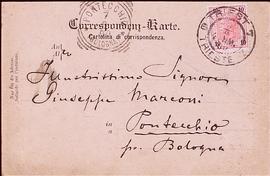 Correspondenz-Karte.
Cartolina di corrispondenza.
An
A
Illustrissimo Signore
Giuseppe Marconi
in
Pontecchio
pr. Bologna
PONTECCHIO
7
TRIEST 7
TRIESTE